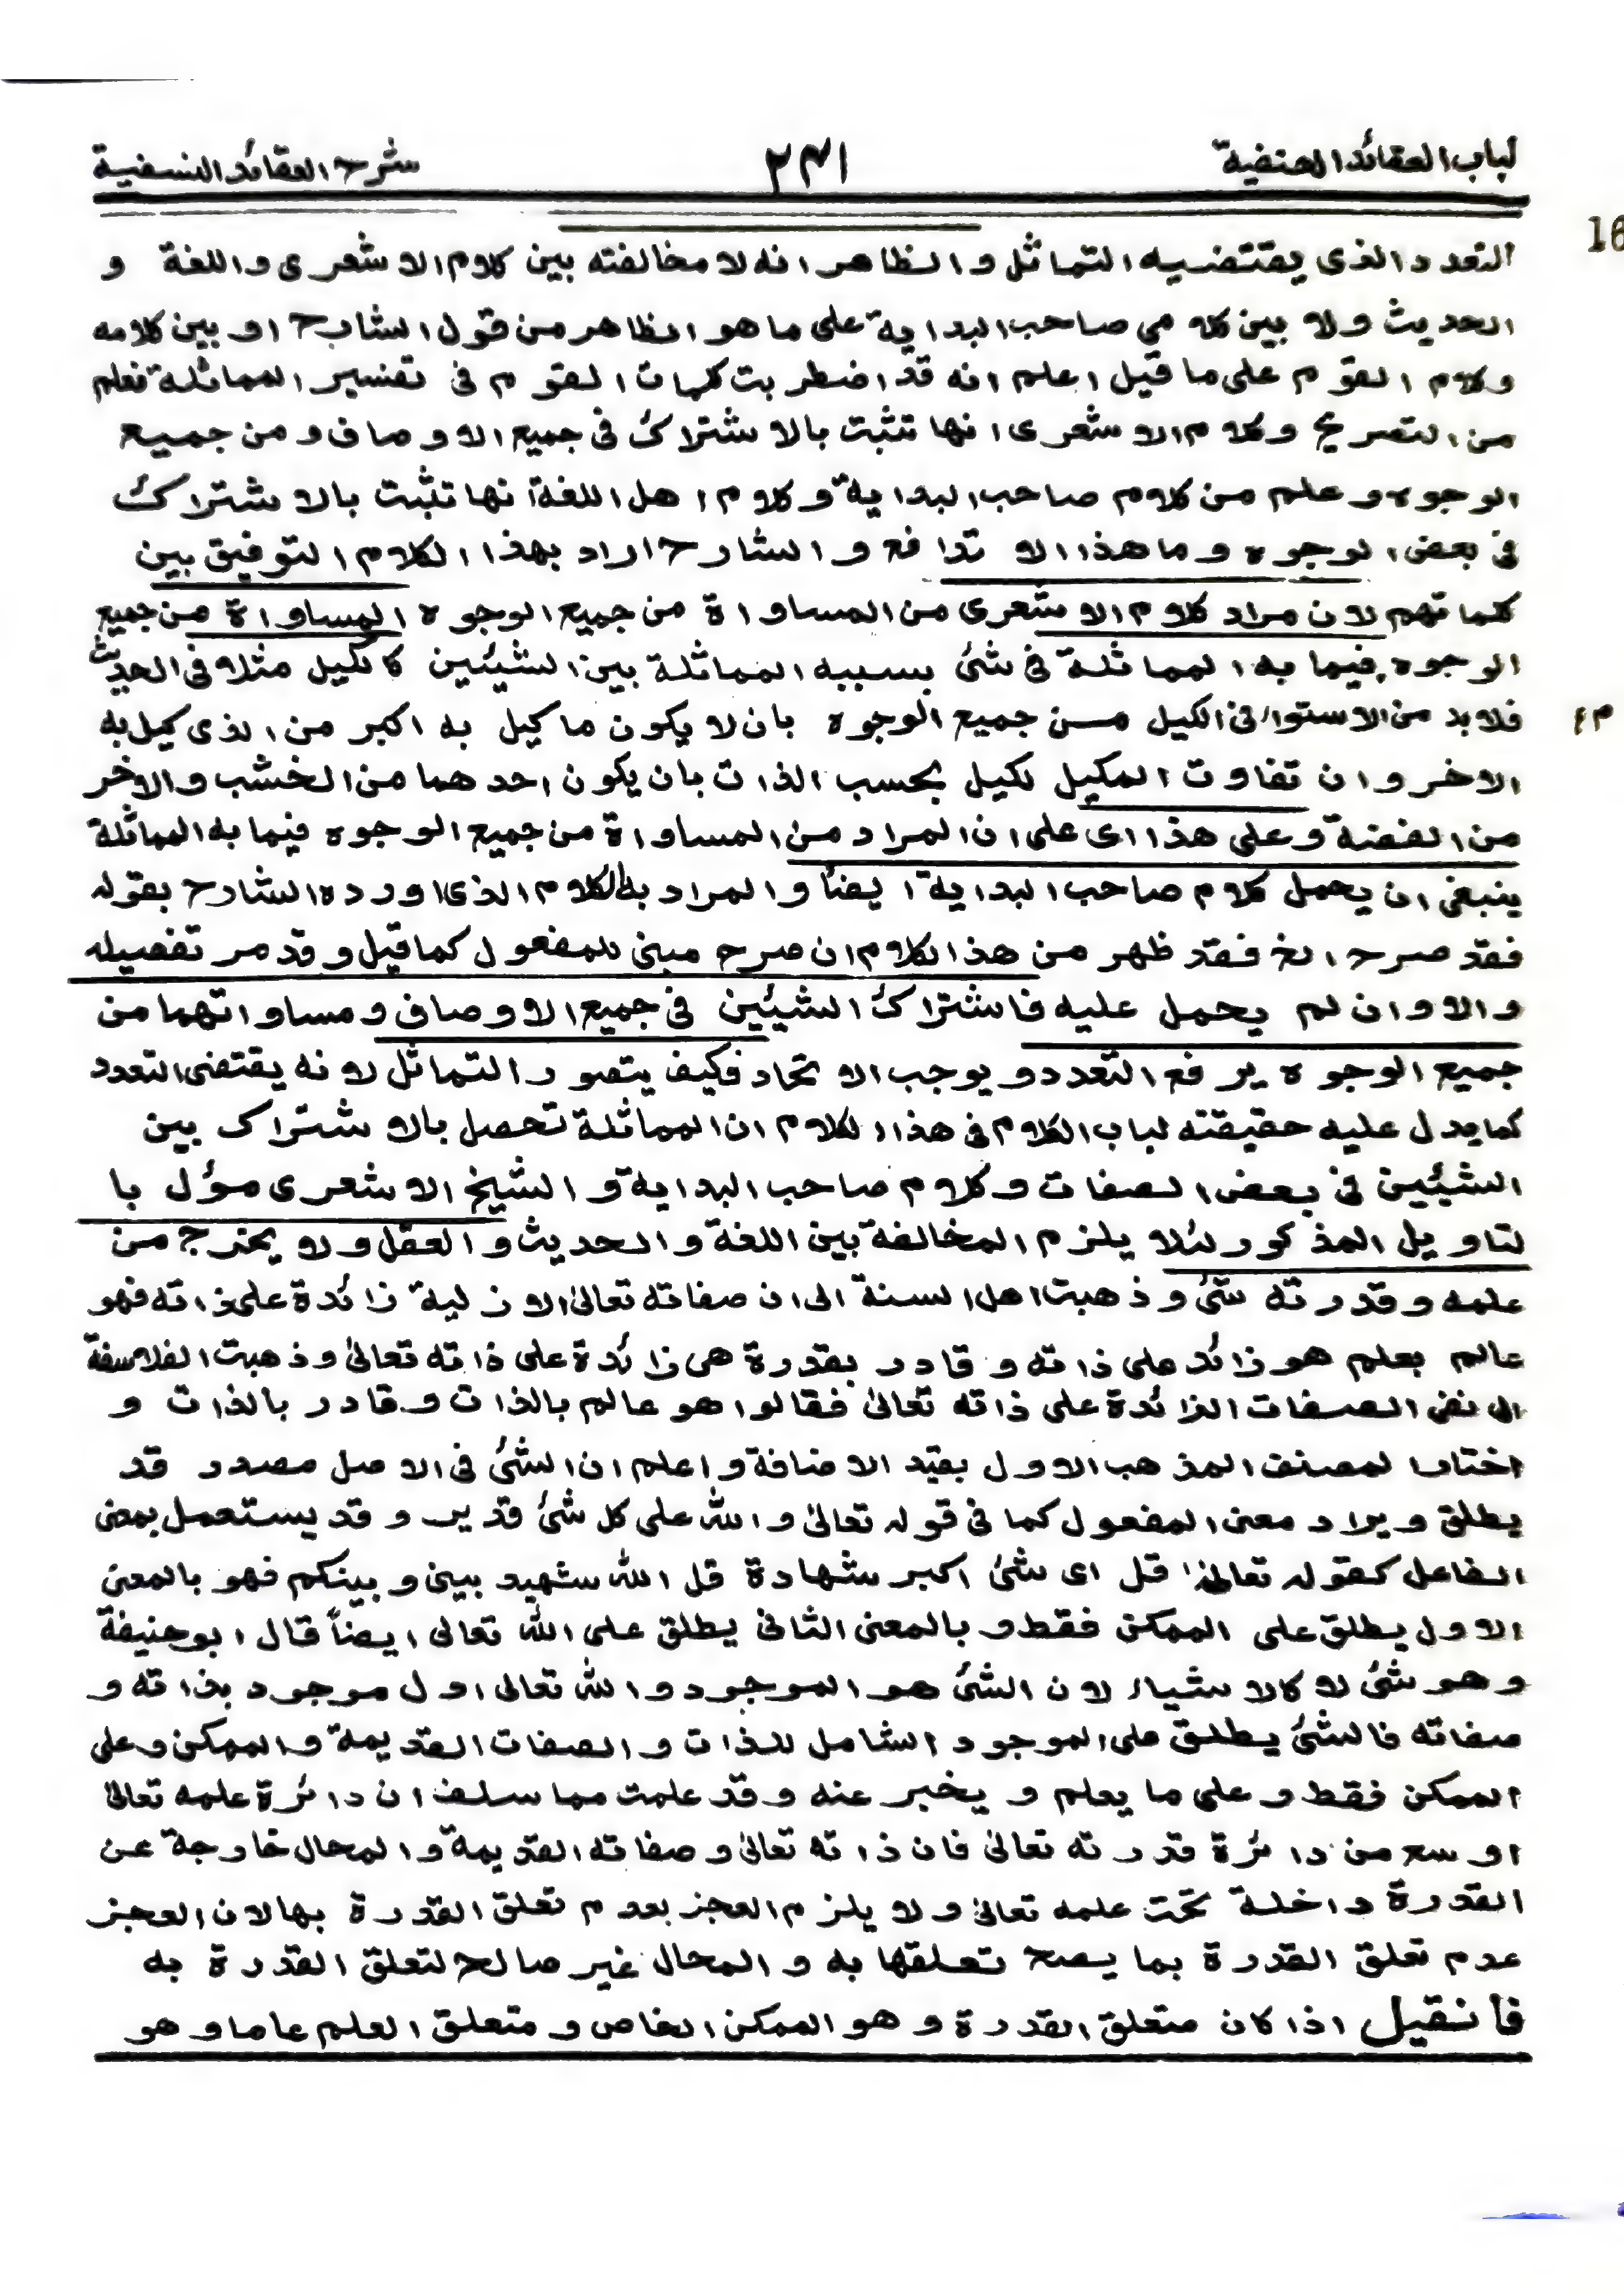 لباب العقائد الحنفية ٢٣١ شرح العقائد النسفية
16
التعدد الذى يقتضيه التماثل والظاهر انه لا مخالفته بين كلام الاشعرى واللغة و
الحديث ولا بين كلامي صاحب البداية على ما هو الظاهر من قول الشارح او بين كلامه
وكلام القوم على ما قيل اعلم انه قد اضطربت كلمات القوم فى تفسير المماثلة فعلم
من التصريح وكلام الاشعرى انها تثبت بالاشتراك فى جميع الاوصاف ومن جميع
الوجوه وعلم من كلام صاحب البداية وكلام اهل اللغة انها تثبت بالاشتراك
فى بعض الوجوه وما هذا الا تدافع والشارح اراد بهذا الكلام التوفيق بين
كلماتهم لان مراد كلام الاشعرى من المساواة من جميع الوجوه المساواة من جميع
الوجوه فيما به المماثلة فى شئ بسببه المماثلة بين الشيئين كالكيل مثلا فى الحديث
فلا بد من الاستواء فى الكيل من جميع الوجوه بان لا يكون ما كيل به اكبر من الذى كيل به
الاخر وان تفاوت المكيل لكيل بحسب الذات بان يكون احدهما من الخشب والاخر
من الفضة وعلى هذا اى على ان المراد من المساواة من جميع الوجوه فيما به المماثلة
ينبغى ان يحمل كلام صاحب البداية ايضا والمراد بالكلام الذى اورده الشارح بقوله
فقد صرح الخ فقد ظهر من هذا الكلام ان صرح مبنى للمفعول كما قيل وقد مر تفصيله
والا وان لم يحمل عليه فاشتراك الشيئين فى جميع الاوصاف ومساواتهما من
جميع الوجوه يرفع التعدد ويوجب الاتحاد فكيف يتصور التماثل لانه يقتضى التعدد
كما يدل عليه حقيقته لباب الكلام فى هذا الكلام ان المماثلة تحصل بالاشتراك بين
الشيئين فى بعض الصفات وكلام صاحب البداية والشيخ الاشعرى مؤل با
لتاويل المذكور لئلا يلزم المخالفة بين اللغة والحديث والعقل ولا يخرج من
علمه وقدرته شئ وذهبت اهل السنة الى ان صفاته تعالىٰ الازلية زائدة على ذاته فهو
عالم بعلم هو زائد على ذاته و قادر بقدرة هى زائدة على ذاته تعالىٰ وذهبت الفلاسفة
الى نفى الصفات الزائدة على ذاته تعالىٰ فقالوا هو عالم بالذات وقادر بالذات و
اختار المصنف المذهب الاول بقيد الاضافة واعلم ان الشئ فى الاصل مصدر قد
يطلق ويراد معنى المفعول كما فى قوله تعالىٰ والله على كل شئ قدير وقد يستعمل بمعنى
الفاعل كقوله تعالىٰ قل اى شئ اكبر شهادة قل الله شهيد بينى وبينكم فهو بالمعنى
الاول يطلق على الممكن فقط وبالمعنى الثانى يطلق على الله تعالى ايضاً قال ابو حنيفة
وهو شئ لا كالاشياء لان الشئ هو الموجود والله تعالى اول موجود بذاته و
صفاته فالشئ يطلق على الموجود الشامل للذات والصفات القديمة والممكن وعلى
الممكن فقط وعلى ما يعلم و يخبر عنه وقد علمت مما سلف ان دائرة علمه تعالىٰ
اوسع من دائرة قدرته تعالىٰ فان ذاته تعالىٰ وصفاته القديمة والمحال خارجة عن
القدرة داخلة تحت علمه تعالىٰ ولا يلزم العجز بعدم تعلق القدرة بها لان العجز
عدم تعلق القدرة بما يصح تعلقها به والمحال غير صالح لتعلق القدرة به
فانقيل اذا كان متعلق القدرة وهو الممكن الخاص ومتعلق العلم عاما وهو